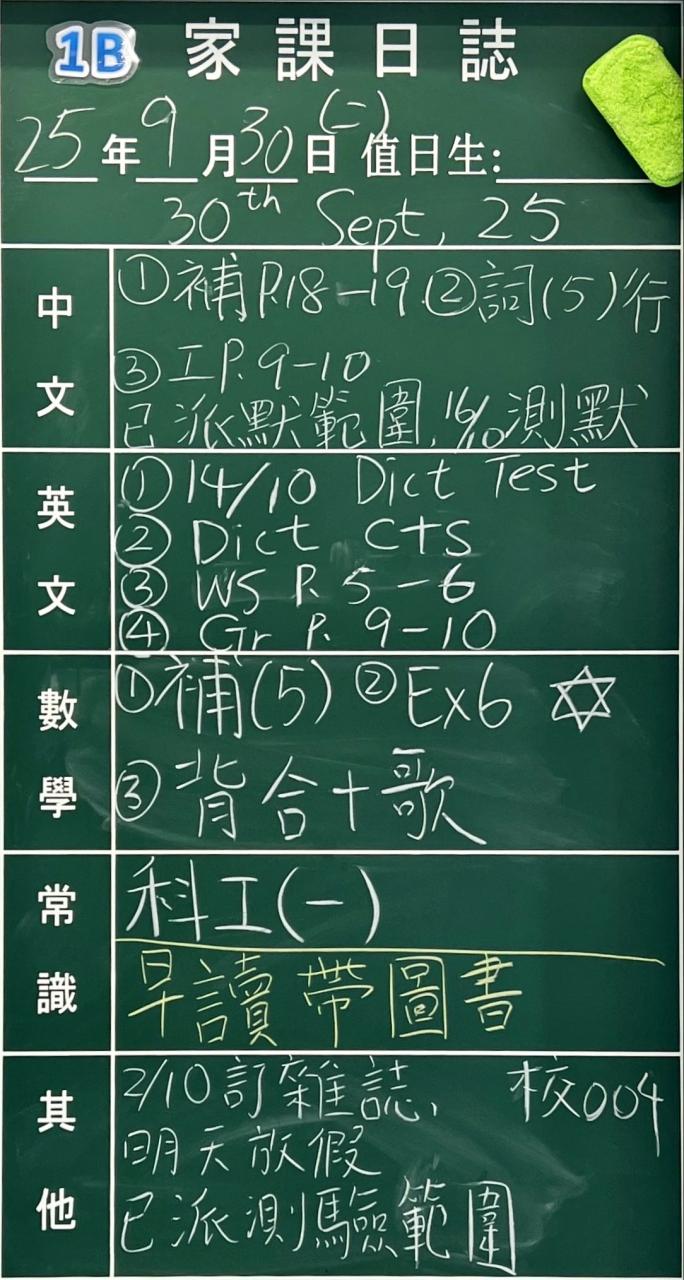 1B 家課日誌
25年9月30日(二) 值日生:
30th Sept, 25
中文
①補P.18-19.②詞(5)行
③工P.9-10
已派默範圍,16/10測默
英文
①14/10 Dict Test
② Dict Cts
③ WS P. 5-6
④ Gr P. 9-10
數學
①補(5) ②Ex6
③背合十歌
常識
科工(一)
早讀帶圖書
其他
2/10訂雜誌, 校004
明天放假
已派測驗範圍